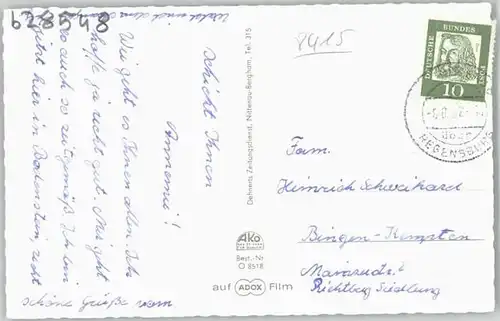 b28548
8415
DEUTSCHE
BUNDES
POST
10
REGENSBURG
Wie geht es Ihnen allen. Ich
hoffe ja recht gut. Mir geht
es auch so zeitgemäß. Ich bin
jetzt hier in Bodenstein, recht
schöne Grüße vom
Wald und
Schickt Ihnen
Annemie!
Dehnerts Zeitungsdienst, Nittenau-Bergham, Tel. 315
Ako
Best.-Nr.
O 8518
auf ADOX Film
Fam.
Heinrich Schweikhard
Bingen-Kempten
Mainzerstr.
Richtberg Siedlung